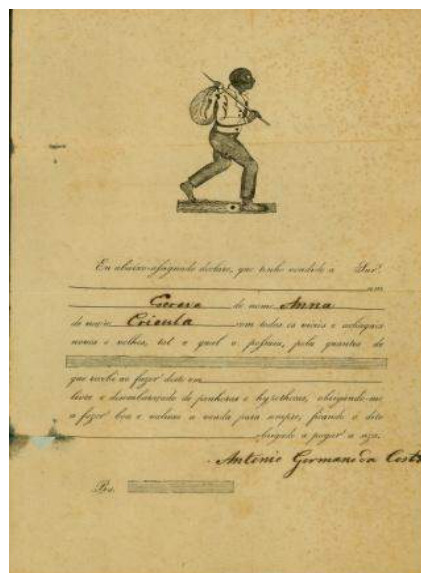 Eu abaixo assignado declaro, que tenho vendido a Snr.
um
Escrava de nome Anna
de nação Crioula com todos os vicios e achaques
novos e velhos, tal e qual o possuia, pela quantia de
que recebi ao fazer deste em
livre e desembaraçado de penhoras e hypothecas, obrigando-me
a fazer boa e valiosa a venda para sempre, ficando o dito
obrigado a pagar a siza.
Antonio Germano da Costa
Rs.